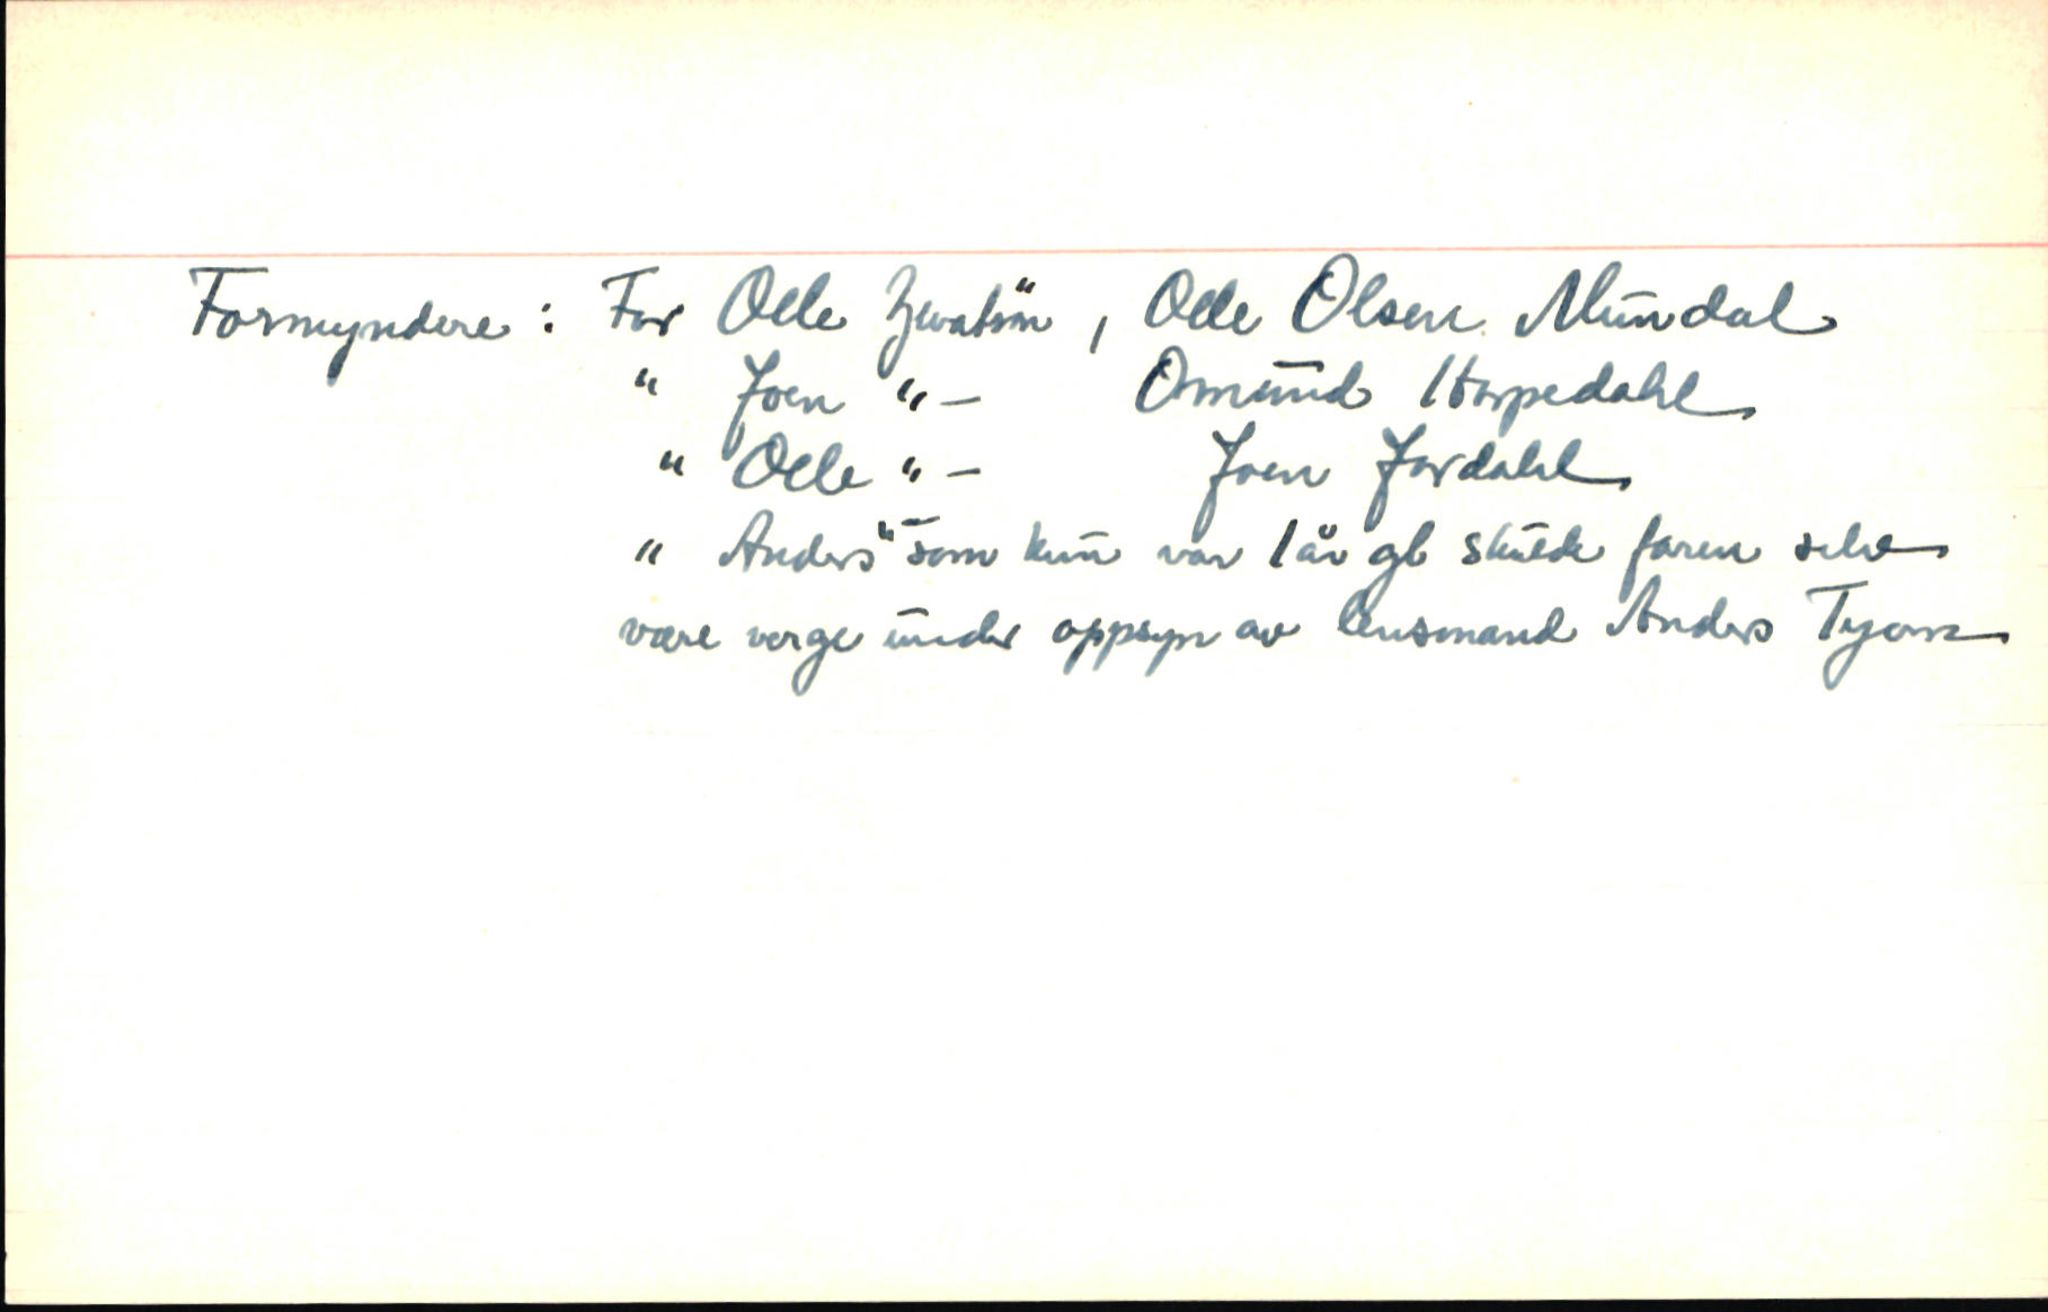 Formyndere : For Olle Ziwatsøn, Olle Olsen Mundal
" Joen " – Omund Harpedahl
" Olle " – Joen Jordahl
" Anders " – som kun var 1 år gl skulde faren selv
være verge under oppsyn av lensmand Anders Tyom